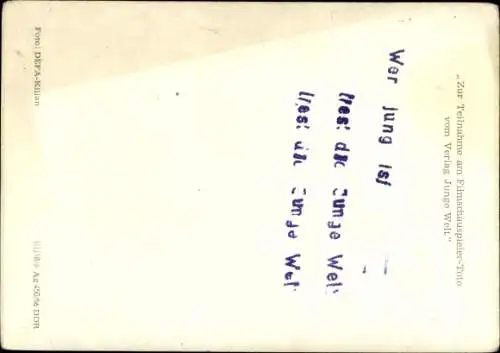 „Zur Teilnahme am Filmschauspieler-Toto
vom Verlag Junge Welt."
Wer jung ist
liest die Junge Welt
liest die Junge Welt
Foto: DEFA-Kilian
Ag 450/56 DDR